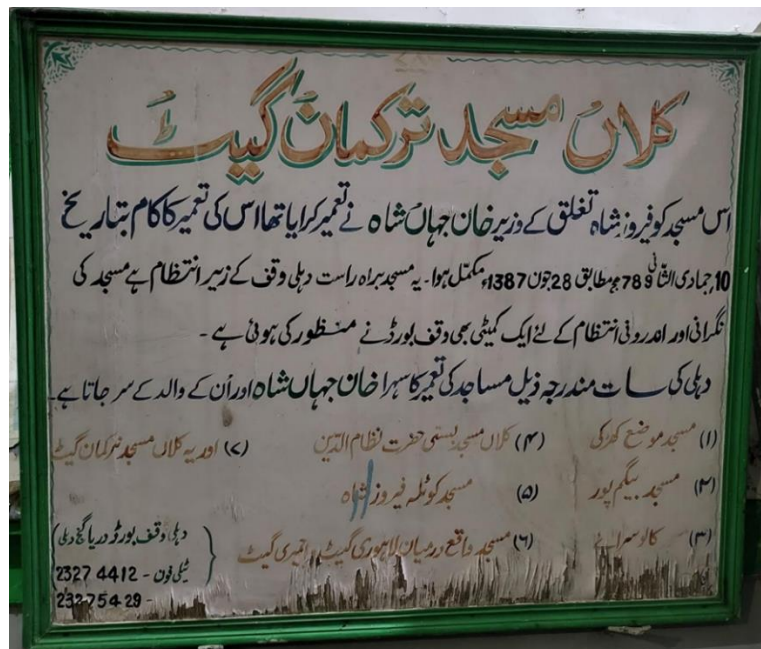 ۷۸۶
کلاں مسجد ترکمان گیٹ
اس مسجد کو فیروز شاہ تغلق کے وزیر خان جہاں شاہ نے تعمیر کرایا تھا اس کی تعمیر کا کام بتاریخ
10، جمادی الثانی 789ھ مطابق 28 جون 1387ء مکمل ہوا۔ یہ مسجد براہ راست دہلی وقف کے زیر انتظام ہے مسجد کی
نگرانی اور اندرونی انتظام کے لئے ایک کمیٹی بھی وقف بورڈ نے منظور کی ہوئی ہے۔
دہلی کی سات مندرجہ ذیل مساجد کی تعمیر کا سہرا خان جہاں شاہ اور اُن کے والد کے سر جاتا ہے۔
(۱) مسجد موضع کھڑکی (۴) کلاں مسجد بستی حضرت نظام الدّین (۷) اور یہ کلاں مسجد ترکمان گیٹ
(۲) مسجد بیگم پور (۵) مسجد کوٹلہ فیروز شاہ
(۳) کالو سرائے (۶) مسجد واقع درمیان لاہوری گیٹ و اجمیری گیٹ
دہلی وقف بورڈ دریا گنج دہلی
ٹیلی فون - 2327 4412
23275429 -